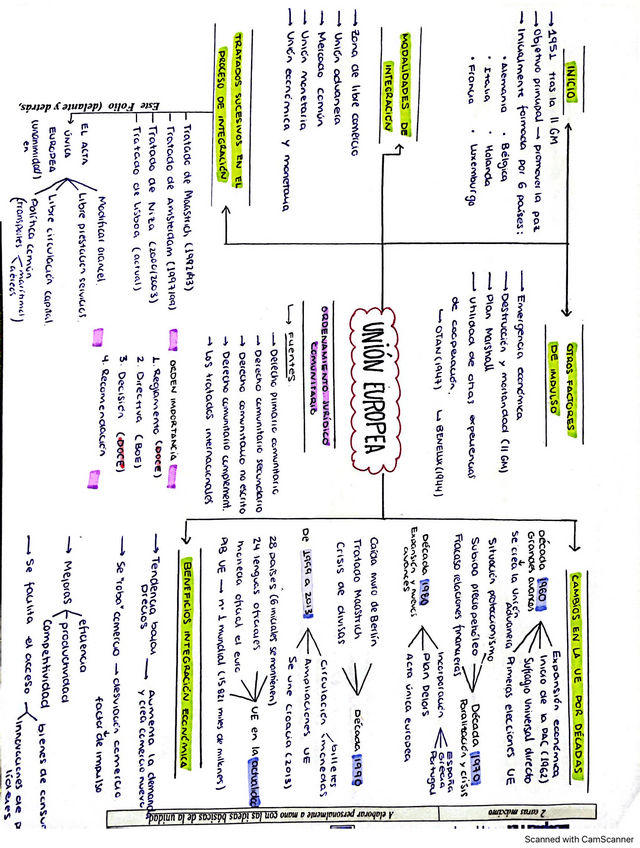 2 caras máximo
A elaborar personalmente a mano con las ideas básicas de la unidad
UNIÓN EUROPEA
INICIO
→ 1951 tras la II GM
→ Objetivo principal → promover la paz
→ Inicialmente formada por 6 países:
• Alemania • Bélgica
• Italia • Holanda
• Francia • Luxemburgo
OTROS FACTORES
DE IMPULSO
→ Emergencia económica
→ Destrucción y mortandad (II GM)
→ Plan Marshall
→ Utilidad de otras experiencias
de cooperación.
↳ OTAN (1947) ↳ BENELUX (1944)
CAMBIOS EN LA UE POR DÉCADAS
Década 1960
Grandes avances
Se crea la unión
aduanera
Expansión económica
Inicio de la PAC (1962)
Sufragio Universal directo
Primeras elecciones UE
Situación proteccionismo
Subida precio petróleo
Fracaso relaciones financieras
Década 1970
Paralización y crisis
Década 1980
Expansión y nuevos
avances
Incorporación
España
Grecia
Portugal
Plan Delors
Acta única europea
Caída muro de Berlín
Tratado Maastrich
Crisis de divisas
Década 1990
De 1999 a 2013
Circulación
billetes
monedas
Ampliaciones UE
Se une Croacia (2013)
28 países (6 iniciales se mantienen)
24 lenguas oficiales
moneda oficial el euro
PIB UE → nº 1 mundial (15.821 miles de millones)
UE en la actualidad
MODALIDADES DE
INTEGRACIÓN
→ Zona de libre comercio
→ Unión aduanera
→ Mercado común
→ Unión monetaria
→ Unión económica y monetaria
ORDENAMIENTO JURÍDICO
COMUNITARIO
↳ Fuentes
→ Derecho primario comunitario
→ Derecho comunitario secundario
→ Derecho comunitario no escrito
→ Derecho comunitario complement.
→ Los tratados internacionales
ORDEN IMPORTANCIA
1. Reglamento (DOCE)
2. Directiva (BOE)
3. Decisión (DOCE)
4. Recomendación
TRATADOS SUCESIVOS EN EL
PROCESO DE INTEGRACIÓN
- Tratado de Maastrich (1992/93)
- Tratado de Amsterdam (1997/99)
- Tratado de Niza (2000/2003)
- Tratado de Lisboa (actual)
Este Folio (delante y detrás,
EL ACTA
ÚNICA
EUROPEA
(unanimidad)
en
Modificar arancel
Libre prestación servicios
Libre circulación capital
Política común
(transportes
marítimos)
aéreos
BENEFICIOS INTEGRACIÓN ECONÓMICA
→ Tendencia bajar
precios
→ Aumenta la demanda
y crea comercio nuevo
→ Se "roba" comercio → desviación comercio
↓
factor de impulso
→ Mejoras
eficiencia
productividad
Competitividad
→ Se facilita el acceso
bienes de consu
innovaciones de p
Scanned with CamScanner